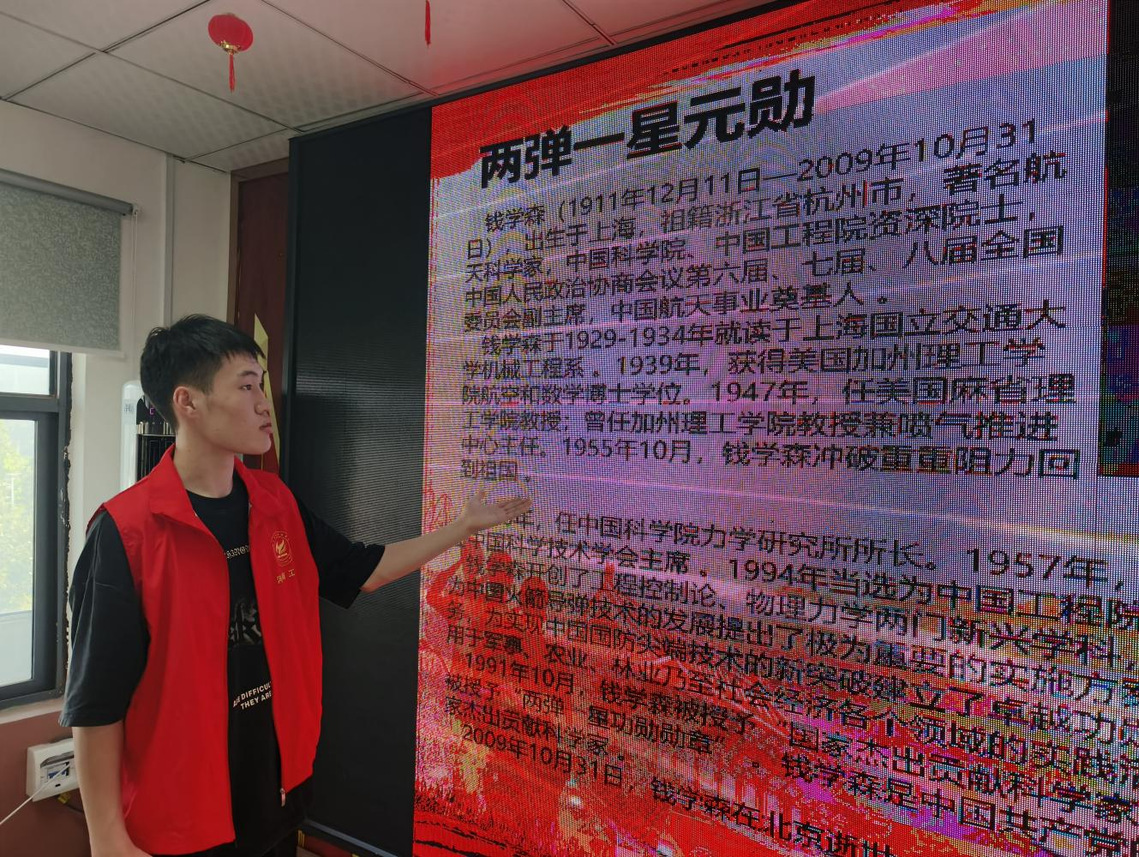 两弹一星元勋
钱学森（1911年12月11日—2009年10月31
日），出生于上海，祖籍浙江省杭州市，著名航
天科学家，中国科学院、中国工程院资深院士，
中国人民政治协商会议第六届、七届、八届全国
委员会副主席，中国航天事业奠基人。
钱学森于1929-1934年就读于上海国立交通大
学机械工程系。1939年，获得美国加州理工学
院航空和数学博士学位。1947年，任美国麻省理
工学院教授；曾任加州理工学院教授兼喷气推进
中心主任。1955年10月，钱学森冲破重重阻力回
到祖国。
年，任中国科学院力学研究所所长。1957年，
中国科学技术学会主席。1994年当选为中国工程院
钱学森开创了工程控制论、物理力学两门新兴学科，
为中国火箭导弹技术的发展提出了极为重要的实施方案
务，为实现中国国防尖端技术的新突破建立了卓越功
用于军事、农业、林业乃至社会经济各个领域的实践活
1991年10月，钱学森被授予“国家杰出贡献科学家
被授予“两弹一星功勋勋章”。钱学森是中国共产党
家杰出贡献科学家。
2009年10月31日，钱学森在北京逝世
DIFFICUL
THEY ARE